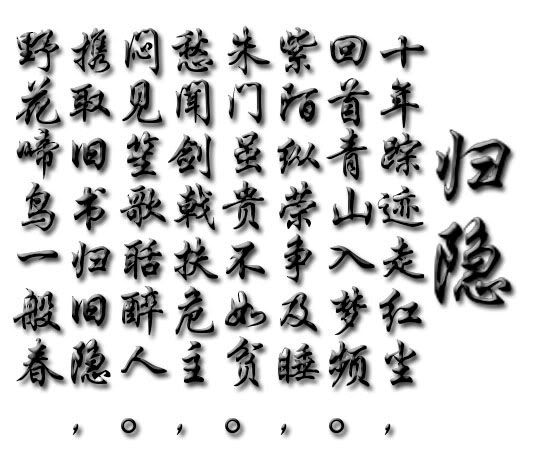 归隐
十年踪迹走红尘，
回首青山入梦频。
紫陌纵荣争及睡，
朱门虽贵不如贫。
愁闻剑戟扶危主，
闷见笙歌聒醉人。
携取旧书归旧隐，
野花啼鸟一般春